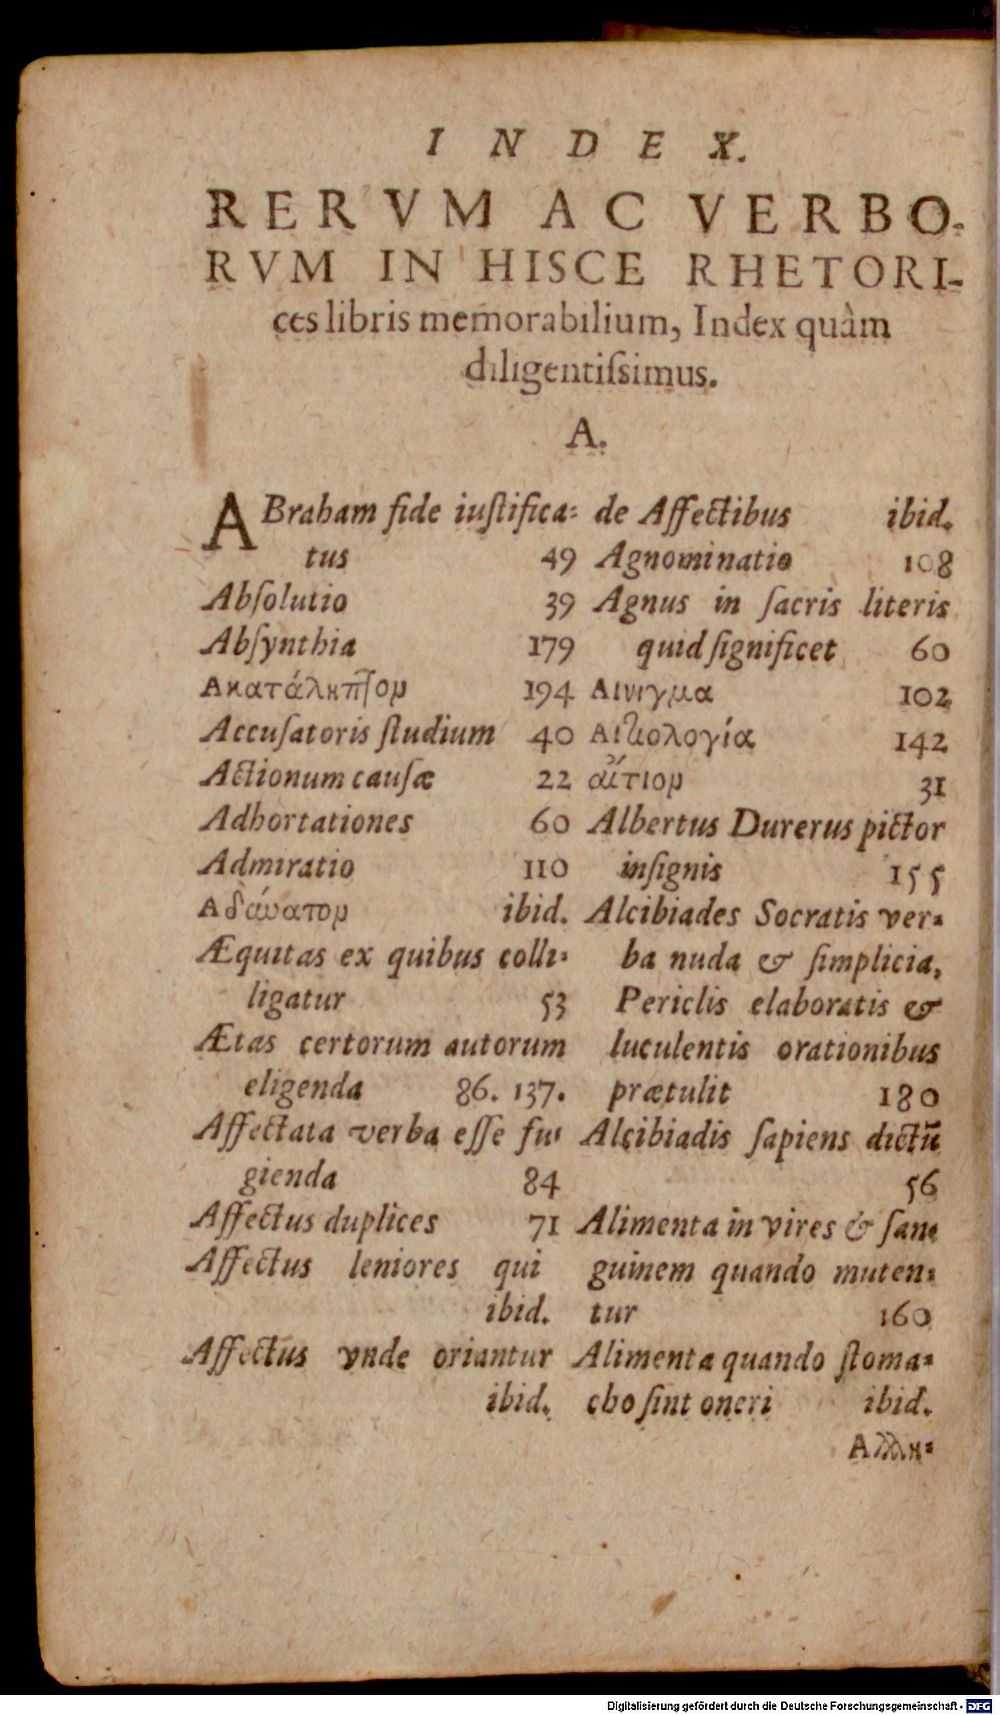 INDEX.
RERVM AC VERBO-
RVM IN HISCE RHETORI-
ces libris memorabilium, Index quàm
diligentiſsimus.
A.
ABraham fide iuſtifica-
tus 49
Abſolutio 39
Abſynthia 179
Ακατάληπτον 194
Accuſatoris ſtudium 40
Actionum cauſæ 22
Adhortationes 60
Admiratio 110
Αδύνατον ibid.
Æquitas ex quibus colli-
ligatur 53
Ætas certorum autorum
eligenda 86. 137.
Affectata verba eſſe fu-
gienda 84
Affectus duplices 71
Affectus leniores qui
ibid.
Affectus vnde oriantur
ibid.
de Affectibus ibid.
Agnominatio 108
Agnus in ſacris literis
quid ſignificet 60
Αινιγμα 102
Αιτιολογία 142
αἴτιον 31
Albertus Durerus pictor
inſignis 155
Alcibiades Socratis ver-
ba nuda & ſimplicia,
Periclis elaboratis &
luculentis orationibus
prætulit 180
Alcibiadis ſapiens dictũ
56
Alimenta in vires & ſan-
guinem quando muten-
tur 160
Alimenta quando ſtoma-
cho ſint oneri ibid.
Αλλη-
Digitalisierung gefördert durch die Deutsche Forschungsgemeinschaft - DFG